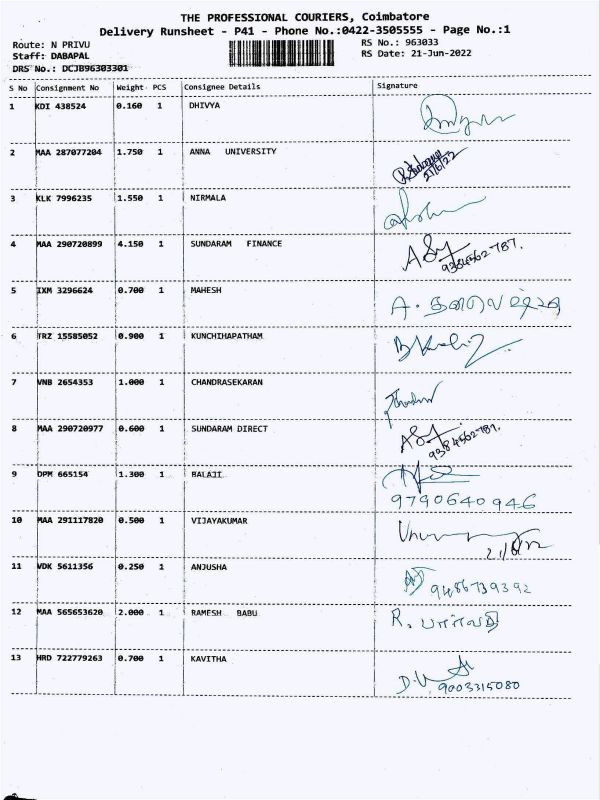 THE PROFESSIONAL COURIERS, Coimbatore
Delivery Runsheet - P41 - Phone No.:0422-3505555 - Page No.:1
Route: N PRIVU RS No.: 963033
Staff: DABAPAL RS Date: 21-Jun-2022
DRS No.: DCJB96303301
S No Consignment No Weight PCS Consignee Details Signature
1 KDI 438524 0.160 1 DHIVYA
2 MAA 287077204 1.750 1 ANNA UNIVERSITY
21/6/22
3 KLK 7996235 1.550 1 NIRMALA
4 MAA 290720899 4.150 1 SUNDARAM FINANCE
9384562787.
5 IXM 3296624 0.700 1 MAHESH A.
6 TRZ 15585052 0.900 1 KUNCHIHAPATHAM
7 VNB 2654353 1.000 1 CHANDRASEKARAN
8 MAA 290720977 0.600 1 SUNDARAM DIRECT
9384562787.
9 DPM 665154 1.300 1 BALAJI
9790640946
10 MAA 291117820 0.500 1 VIJAYAKUMAR
11 VDK 5611356 0.250 1 ANJUSHA
9486739392
12 MAA 565653620 2.000 1 RAMESH BABU R.
13 HRD 722779263 0.700 1 KAVITHA
D.V 9003315080